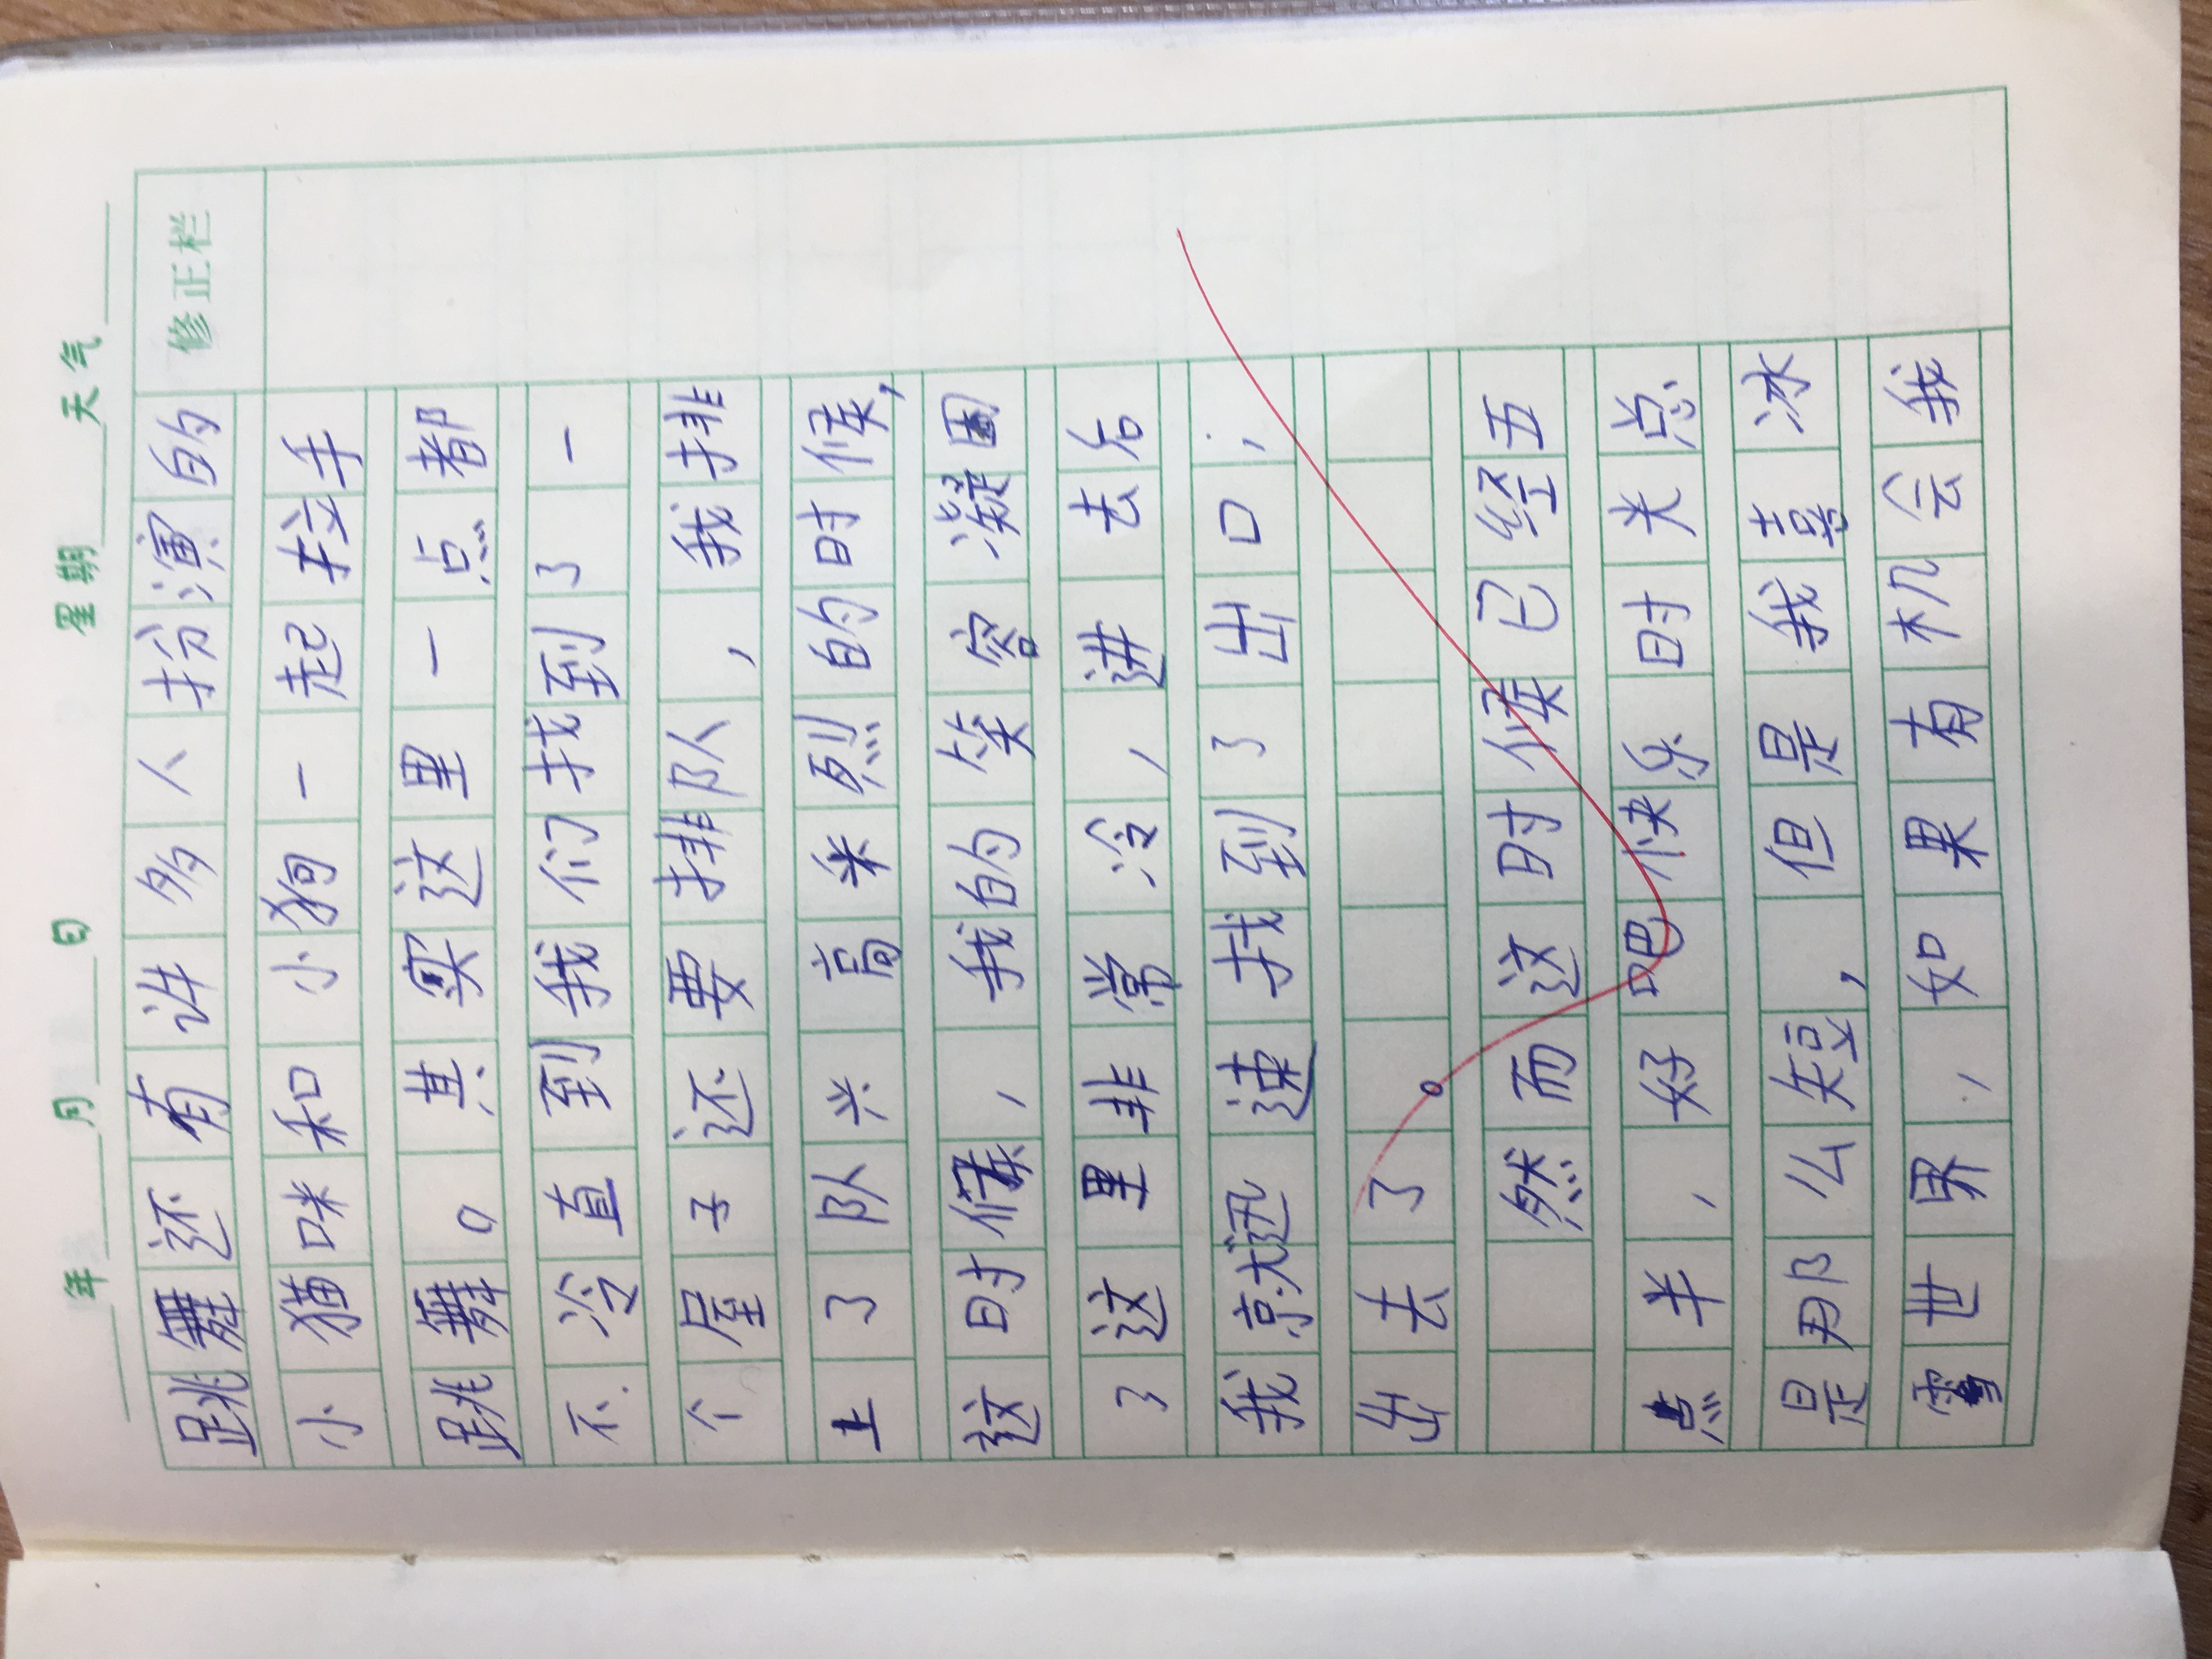 年 月 日 星期 天气
修正栏
跳舞还有许多人扮演的
小猫咪和小狗一起拉手
跳舞。其实这里一点都
不冷直到我们找到了一
个屋子还要排队，我排
上了队兴高采烈的时候，
这时候，我的笑容凝固
了这里非常冷，进去后
我就迅速找到了出口，
出去了。
然而这时候已经五
点半，好吧快乐时光总
是那么短，但是我喜冰
雪世界，如果有机会我